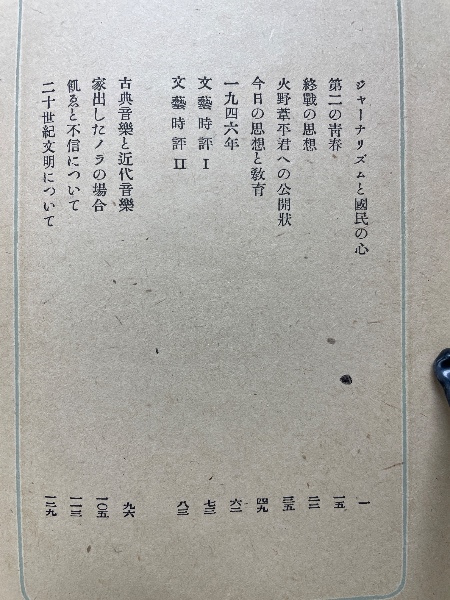 ジャーナリズムと國民の心 一
第二の靑春 一五
終戰の思想 二二
火野葦平君への公開狀 三五
今日の思想と敎育 四九
一九四六年 六二
文藝時評 I 七三
文藝時評 II 八三
古典音樂と近代音樂 九六
家出したノラの場合 一〇五
飢ゑと不信について 一一三
二十世紀文明について 一二九